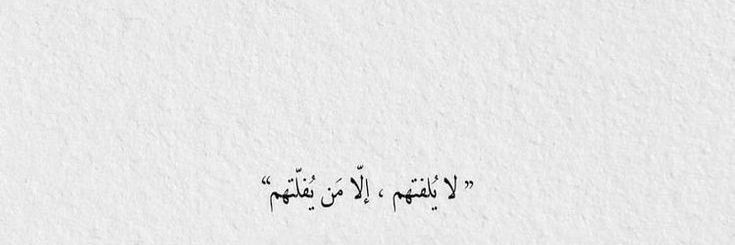 ” لا يُلفتهم ، إلّا مَن يُفلّتهم“